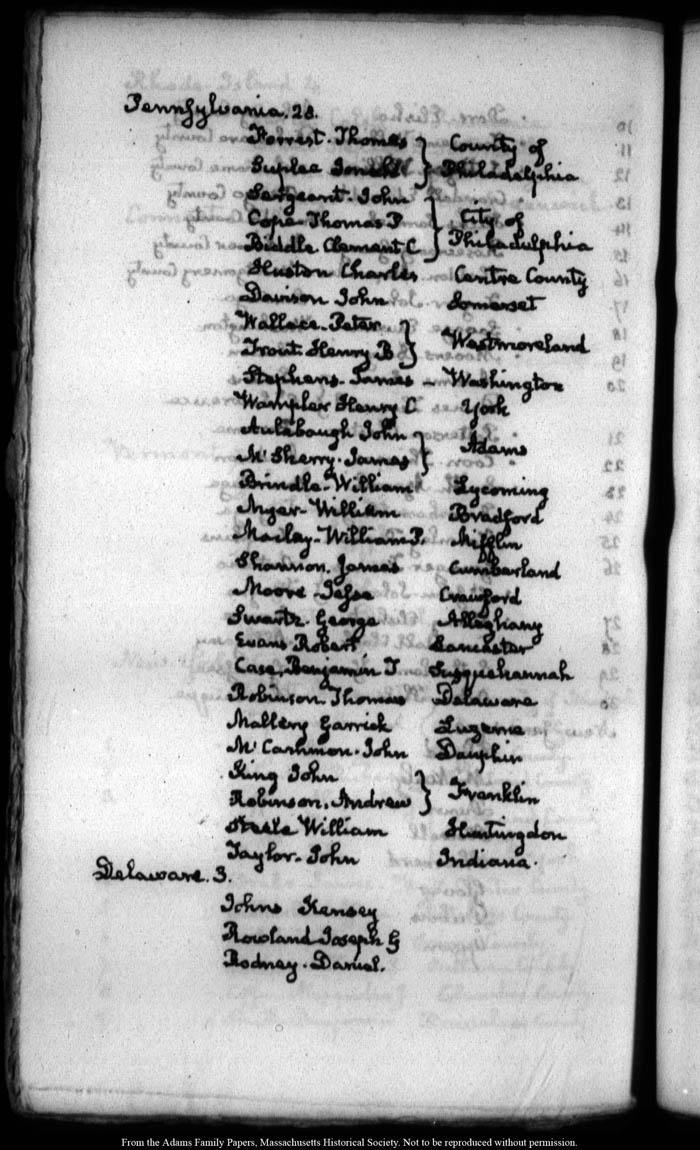 Pennsylvania. 28.
Forrest. Thomas } County of
Suplee Jonathan } Philadelphia
Sergeant. John }
Cope. Thomas P } City of
Biddle Clement C } Philadelphia
Huston Charles Centre County
Davison John Somerset
Wallace. Peter }
Trout. Henry B } Westmoreland
Stephens. James – Washington
Wampler Henry C York
Aulabaugh John } Adams
Mc Sherry. James }
Brindle. William Lycoming
Myer. William Bradford
Maclay. William P. Mifflin
Shannon. James Cumberland
Moore. Jesse Crawford
Swartz. George Alleghany
Evans Robert Lancaster
Case, Benjamin T Susquehannah
Robinson. Thomas Delaware
Mallery Garrick Luzerne
Mc Cashmon. John Dauphin
King John }
Robinson. Andrew } Franklin
Steele William Huntingdon
Taylor. John Indiana.
Delaware. 3.
Johns Kensey
Rowland Joseph G
Rodney. Daniel.
From the Adams Family Papers, Massachusetts Historical Society. Not to be reproduced without permission.